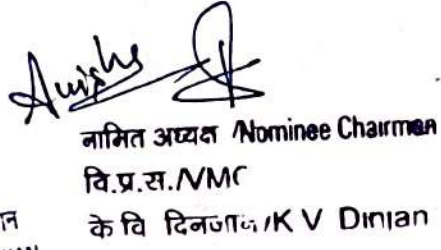 नामित अध्यक्ष /Nominee Chairman
वि.प्र.स./VMC
के वि दिनजान/K V Dinjan